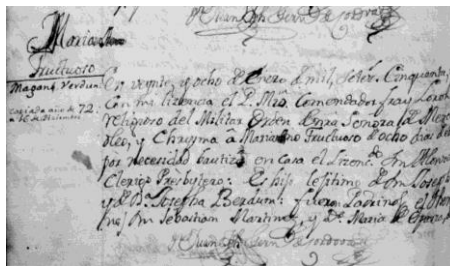 Juan Jph Fern.z de Cordova
Maria
Fructuoso
Magan.a, Verdun.
copiada año de 72.
a 16 de Diciembre
En veynte, y ocho de Enero de mil, Setez.s Cinquenta,
Con mi lizencia el P. Mro. Comendador fray
Religioso del Militar Orden de nra Senora de
oleo, y Chrysma â Mariano Fructuoso de ocho dias
por necesidad bautizò en casa el Lizenc.do Dn
Clerigo Presbytero: Es hijo lexitimo de Dn Joseph
y de Da. Josepha Berdum: fueron Padrinos, el
Dn Sebastian Martinez, y Da. Maria de
Juan Jph Fern.z de Cordova